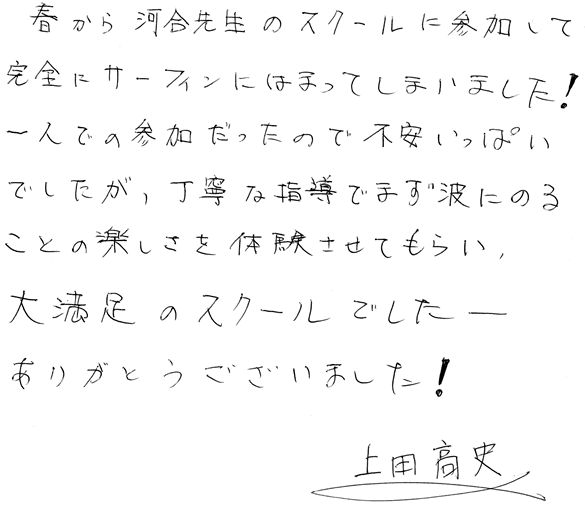 春から河合先生のスクールに参加して
完全にサーフィンにはまってしまいました!
一人での参加だったので不安いっぱい
でしたが、丁寧な指導でまず波にのる
ことの楽しさを体験させてもらい、
大満足のスクールでしたー
ありがとうございました!
上田高史